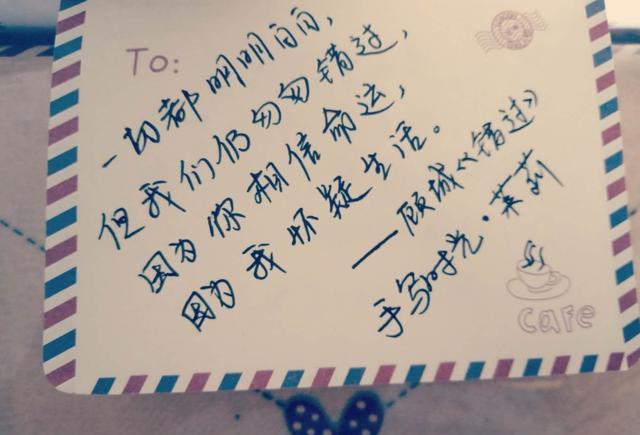 To:
一切都明明白白,
但我们仍匆匆错过,
因为你相信命运,
因为我怀疑生活。
——顾城《错过》
手写时光·茉莉
cafe